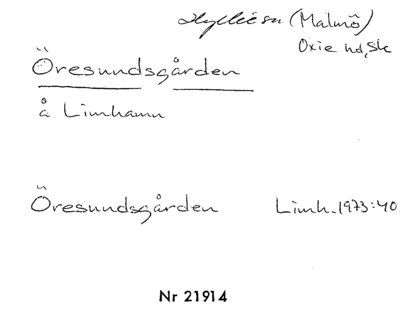 Hyllie sn (Malmö)
Oxie hd, Sk
Öresundsgården
å Limhamn
Öresundsgården Limh. 1973:40
Nr 21914